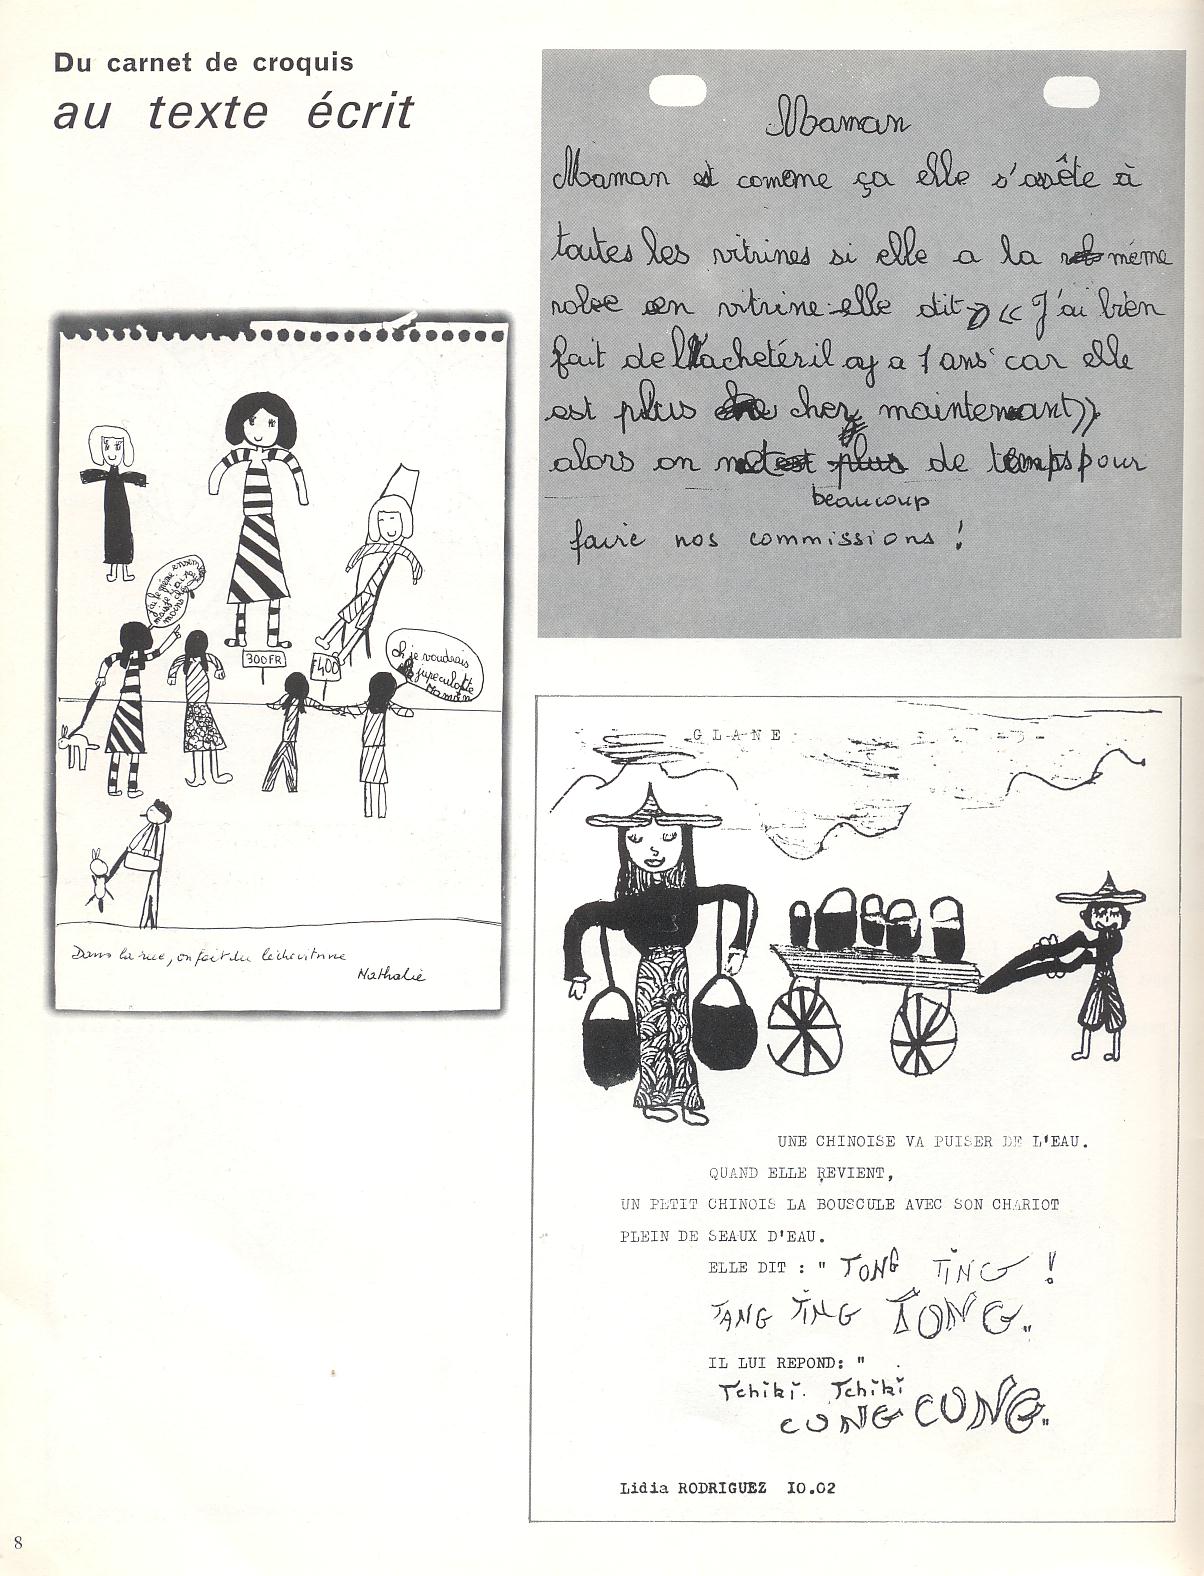 Du carnet de croquis
au texte écrit
Maman
Maman est comme ça elle s'arrête à
toutes les vitrines si elle a la même
robe en vitrine elle dit « J'ai bien
fait de l'acheter il y a 1 ans car elle
est plus cher maintenant »
alors on de temps pour
beaucoup
faire nos commissions !
J'ai le même ensem
moins cher
oh je voudrais
la jupeculotte
Maman
300FR
F400
Dans la rue, on fait du lèchevitrine
Nathalie
GLANE
UNE CHINOISE VA PUISER DE L'EAU.
QUAND ELLE REVIENT,
UN PETIT CHINOIS LA BOUSCULE AVEC SON CHARIOT
PLEIN DE SEAUX D'EAU.
ELLE DIT : " TONG TING !
TANG TING TONG."
IL LUI REPOND: "
Tchiki. Tchiki
CUNG CUNG."
Lidia RODRIGUEZ IO.O2
8